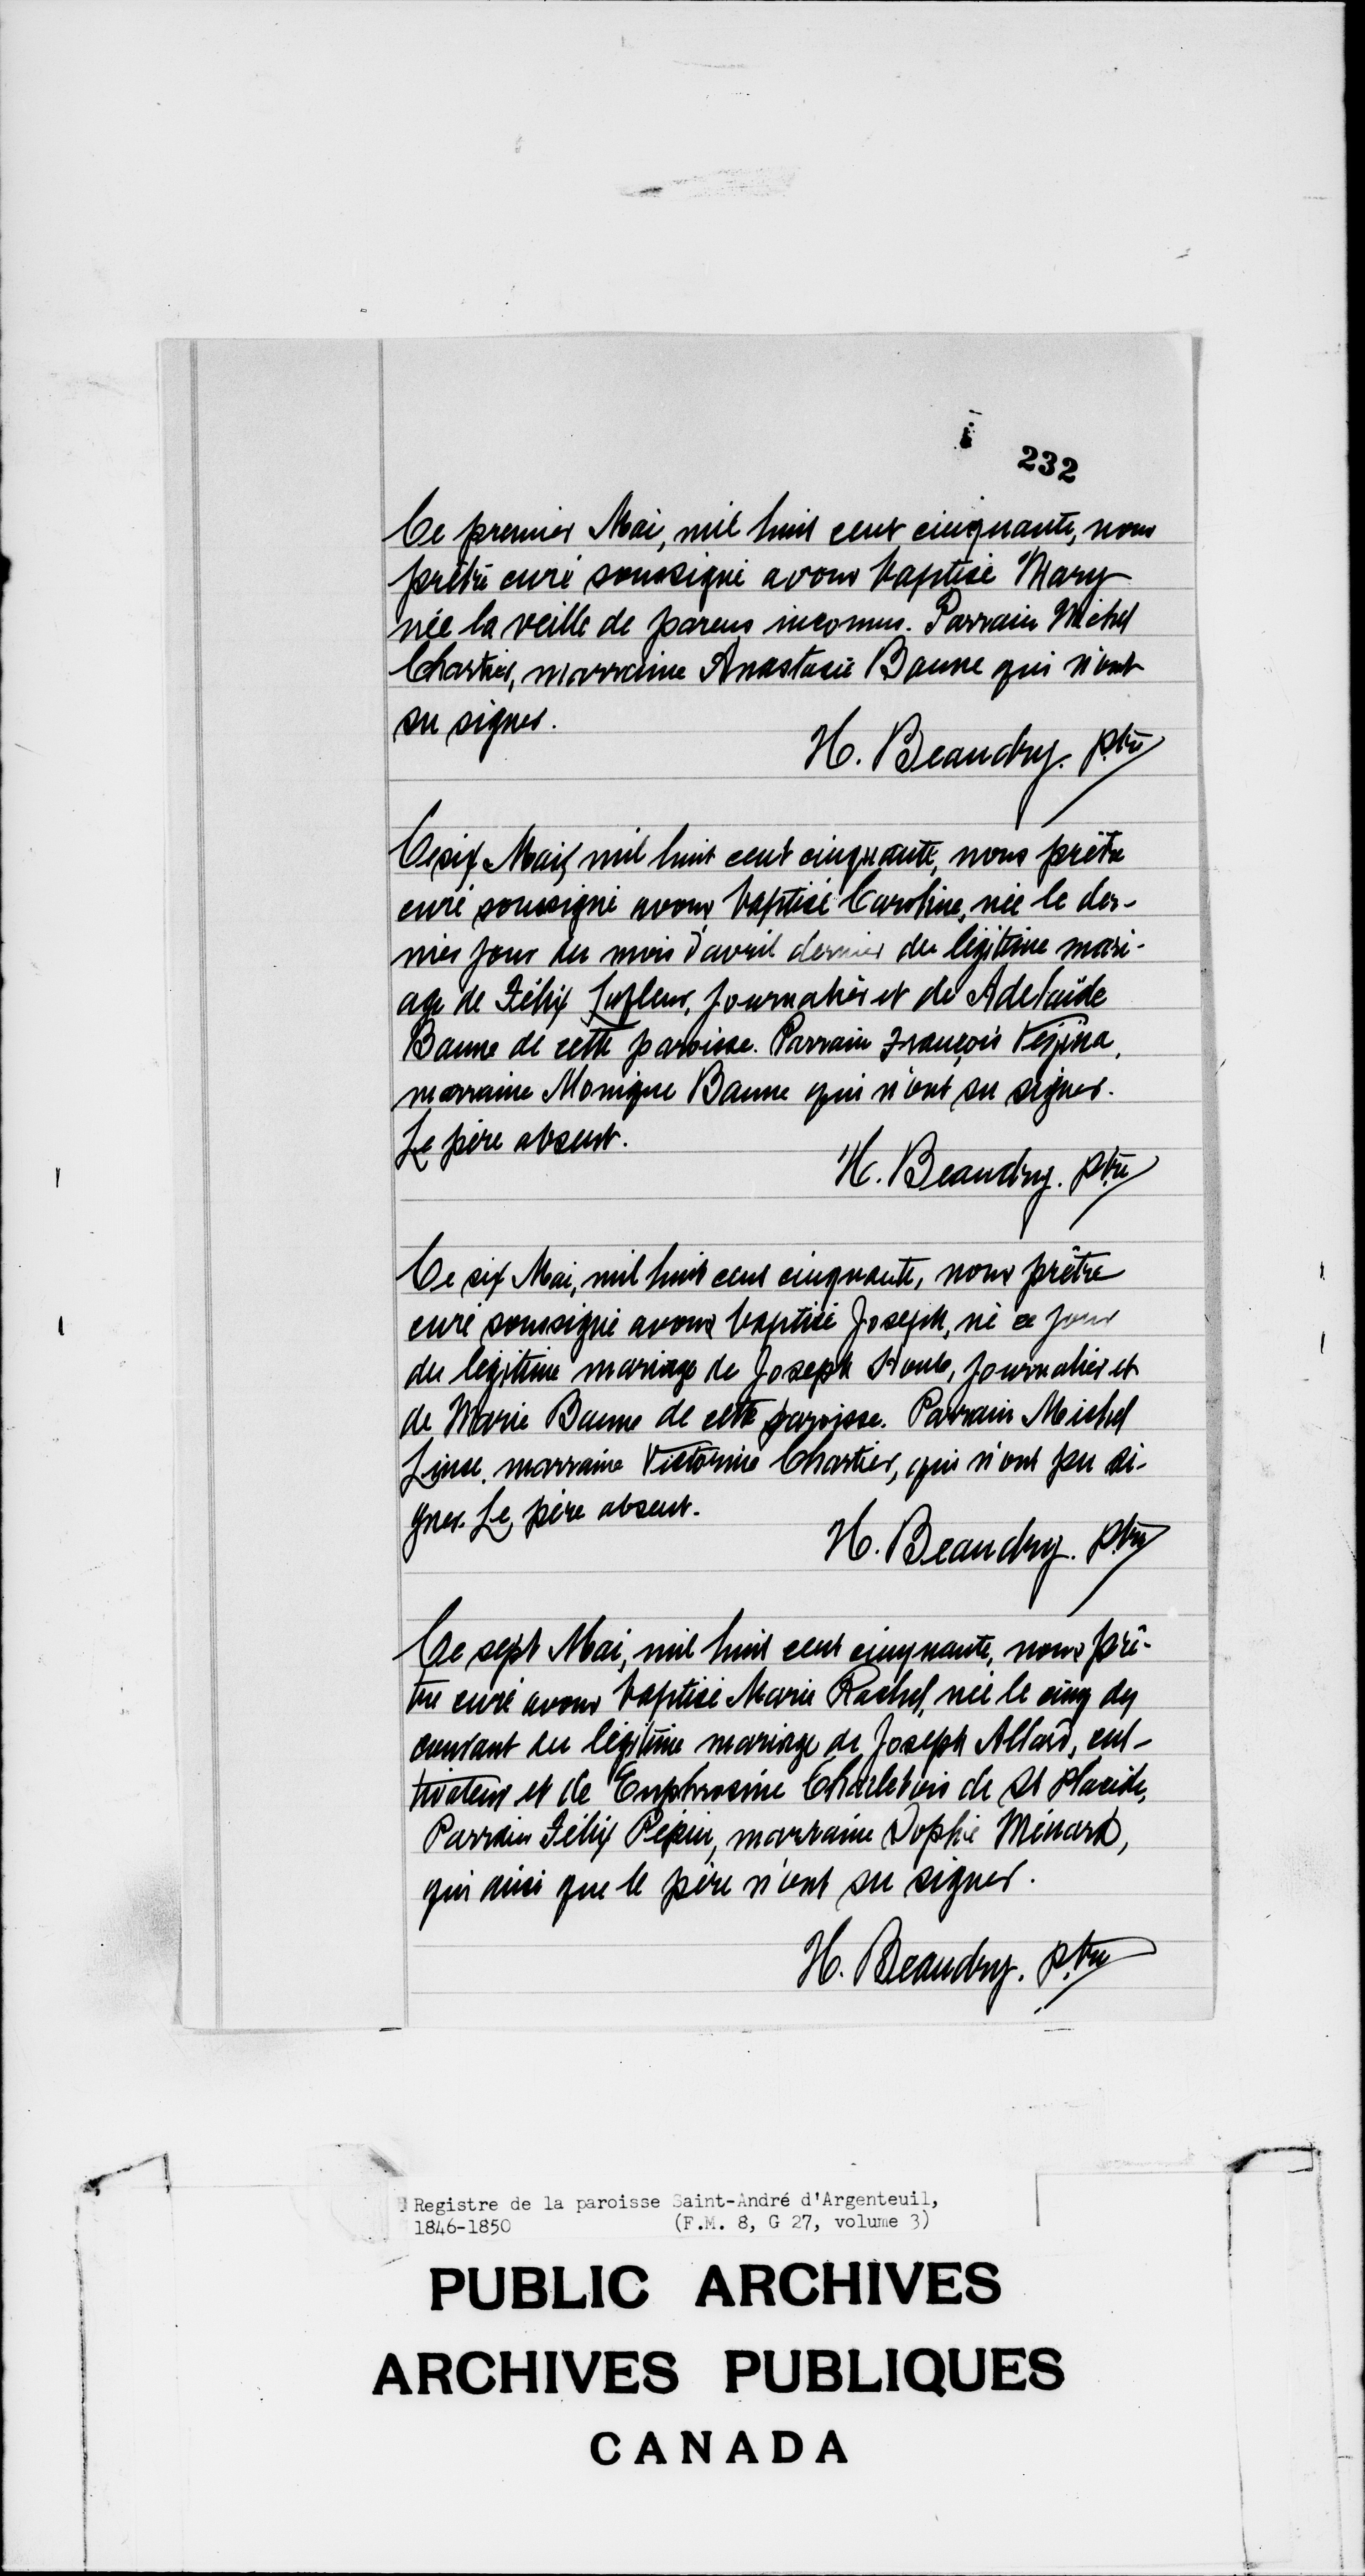 232
Ce premier Mai, mil huit cent cinquante, nous
prêtre curé soussigné avons baptisé Mary
née la veille de parens inconnus. Parrain Michel
Chartier, marraine Anastasie Baune qui n'ont
su signer.
H. Beaudry. ptre
Ce six Mai, mil huit cent cinquante, nous prêtre
curé soussigné avons baptisé Caroline, née le der-
nier jour du mois d'avril dernier du légitime mari-
age de Félix Lafleur, journalier et de Adelaïde
Baune de cette paroisse. Parrain François Vézina,
marraine Monique Baune qui n'ont su signer.
Le père absent.
H. Beaudry. ptre
Ce six Mai, mil huit cent cinquante, nous prêtre
curé soussigné avons baptisé Joseph, né ce jour
du légitime mariage de Joseph journalier et
de Marie Baune de cette paroisse. Parrain Michel
marraine Victorine Chartier, qui n'ont pu si-
gner. Le père absent.
H. Beaudry. ptre
Ce sept Mai, mil huit cent cinquante, nous prê-
tre curé avons baptisé Marie Rachel, née le cinq du
courant du légitime mariage de Joseph Allard, cul-
tivateur et de Euphrosine Charlebois de St Placide,
Parrain Félix Pépin, marraine Sophie Ménard,
qui ainsi que le père n'ont su signer.
H. Beaudry. ptre
Registre de la paroisse Saint-André d'Argenteuil,
1846-1850 (F.M. 8, G 27, volume 3)
PUBLIC ARCHIVES
ARCHIVES PUBLIQUES
CANADA